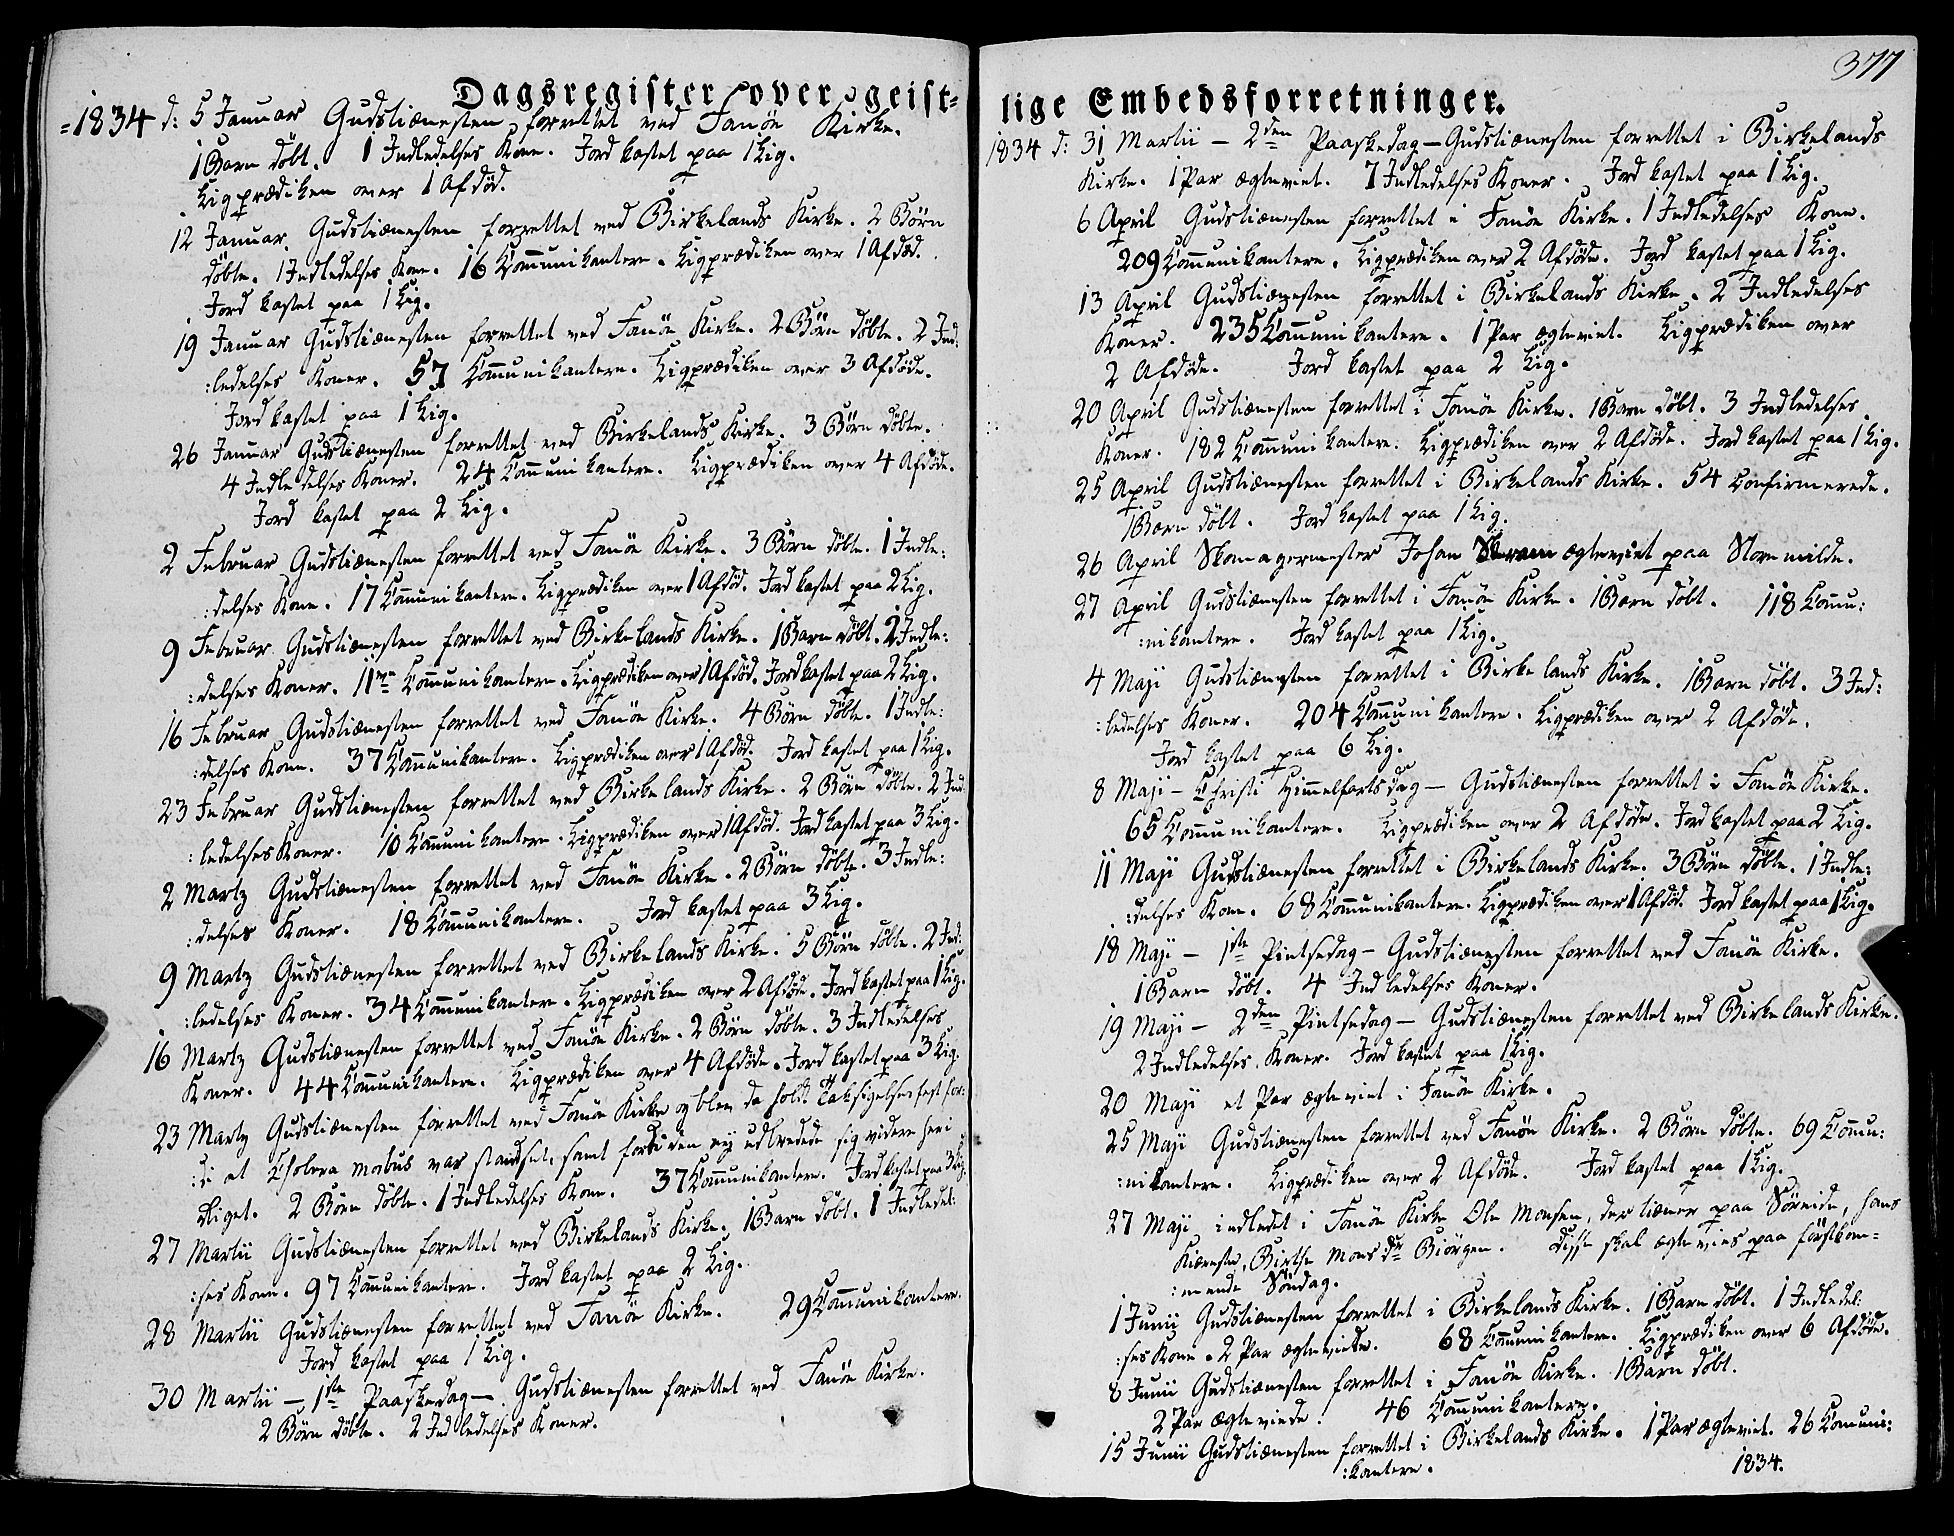 Dagsregister over geist-
=1834 d: 5 Januar Gudstienesten forrettet ved Fanöe Kirke.
1 Barn döbt. 1 Indledelses Kone. Jord kastet paa 1 Lig.
Ligprædiken over 1 Afdød.
12 Januar. Gudstienesten forrettet ved Birkelands Kirke. 2 Börn
döbte. 1 Indledelses Kone. 16 Communikantere. Ligprædiken over 1 Afdød.
Jord kastet paa 1 Lig.
19 Januar Gudstienesten forrettet ved Fanöe Kirke. 2 Börn döbte. 2 Ind:
:ledelses Koner. 57 Communikantere. Ligprædiken over 3 Afdøde.
Jord kastet paa 1 Lig.
26 Januar Gudstienesten forrettet ved Birkelands Kirke. 3 Börn döbte.
4 Indledelses Koner. 24 Communikantere. Ligprædiken over 4 Afdøde.
Jord kastet paa 2 Lig.
2 Februar Gudstienesten forrettet ved Fanöe Kirke. 3 Börn döbte. 1 Indle:
:delses Kone. 17 Communikantere. Ligprædiken over 1 Afdød. Jord kastet paa 2 Lig.
9 Februar Gudstienesten forrettet ved Birkelands Kirke. 1 Barn döbt. 2 Indle:
:delses Koner. 11 Communikantere. Ligprædiken over 1 Afdød. Jord kastet paa 2 Lig.
16 Februar Gudstienesten forrettet ved Fanöe Kirke. 4 Börn döbte. 1 Indle:
:delses Kone. 37 Communikantere. Ligprædiken over 1 Afdød. Jord kastet paa 1 Lig.
23 Februar Gudstienesten forrettet ved Birkelands Kirke. 2 Börn döbte. 2 Ind:
:ledelses Koner. 10 Communikantere. Ligprædiken over 1 Afdød. Jord kastet paa 3 Lig.
2 Martz Gudstienesten forrettet ved Fanöe Kirke. 2 Börn döbte. 3 Indle:
:delses Koner. 18 Communikantere. Jord kastet paa 3 Lig.
9 Martz Gudstienesten forrettet ved Birkelands Kirke. 5 Börn döbte. 2 Ind:
:ledelses Koner. 34 Communikantere. Ligprædiken over 2 Afdøde. Jord kastet paa 1 Lig.
16 Martz Gudstienesten forrettet ved Fanöe Kirke. 2 Börn döbte. 3 Indledelses
Koner. 44 Communikantere. Ligprædiken over 4 Afdøde. Jord kastet paa 3 Lig.
23 Martz Gudstienesten forrettet ved Fanöe Kirke og blev da holdt et Taksigelsesfest for:
:di at Cholera morbus var standset, samt fordi den ey udbredede sig videre heri
Riget. 2 Börn döbte. 1 Indledelses Kone. 37 Communikantere. Jord kastet paa 3 Lig.
27 Martii Gudstienesten forrettet ved Birkelands Kirke. 1 Barn döbt. 1 Indledel:
:ses Kone. 97 Communikantere. Jord kastet paa 2 Lig.
28 Martii Gudstienesten forrettet ved Fanöe Kirke. 29 Communikantere.
Jord kastet paa 1 Lig.
30 Martii – 1ste Paaskedag – Gudstienesten forrettet ved Fanöe Kirke.
2 Börn döbte. 2 Indledelses Koner.
377
lige Embedsforretninger.
1834 d: 31 Martii – 2den Paaskedag – Gudstienesten forrettet i Birkelands
Kirke. 1 Par ægteviet. 7 Indledelses Koner. Jord kastet paa 1 Lig.
6 April Gudstienesten forrettet i Fanöe Kirke. 1 Indledelses Kone.
209 Communikantere. Ligprædiken over 2 Afdøde. Jord kastet paa 1 Lig.
13 April Gudstienesten forrettet i Birkelands Kirke. 2 Indledelses
Koner. 235 Communikantere. 1 Par ægteviet. Ligprædiken over
2 Afdøde. Jord kastet paa 2 Lig.
20 April Gudstienesten forrettet i Fanöe Kirke. 1 Barn döbt. 3 Indledelses
Koner. 182 Communikantere. Ligprædiken over 2 Afdøde. Jord kastet paa 1 Lig.
25 April Gudstienesten forrettet i Birkelands Kirke. 54 Confirmerede.
1 Barn döbt. Jord kastet paa 1 Lig.
26 April Skomagermester Johan ægteviet paa Storemilde.
27 April Gudstienesten forrettet i Fanöe Kirke. 1 Barn döbt. 118 Commu:
:nikantere. Jord kastet paa 1 Lig.
4 Maji Gudstienesten forrettet i Birkelands Kirke. 1 Barn döbt. 3 Ind:
:ledelses Koner. 204 Communikantere. Ligprædiken over 2 Afdøde.
Jord kastet paa 6 Lig.
8 Maji – Christi Himmelfartsdag – Gudstienesten forrettet i Fanöe Kirke.
65 Communikantere. Ligprædiken over 2 Afdøde. Jord kastet paa 2 Lig.
11 Maji Gudstienesten forrettet i Birkelands Kirke. 3 Börn döbte. 1 Indle:
:delses Kone. 68 Communikantere. Ligprædiken over 1 Afdød. Jord kastet paa 1 Lig.
18 Maji – 1ste Pintsedag – Gudstienesten forrettet ved Fanöe Kirke.
1 Barn döbt. 4 Indledelses Koner.
19 Maji – 2den Pintsedag – Gudstienesten forrettet ved Birkelands Kirke.
2 Indledelses Koner. Jord kastet paa 1 Lig.
20 Maji et Par ægteviet i Fanöe Kirke.
25 Maji Gudstienesten forrettet ved Fanöe Kirke. 2 Börn döbte. 69 Commu:
:nikantere. Ligprædiken over 2 Afdøde. Jord kastet paa 1 Lig.
27 Maji indledet i Fanöe Kirke Ole Monsen, der tiener paa Söreide, hans
Kiæreste, Birthe Mons dr Biörgen. Disse skal ægtevies paa förstkom=
:mende Söndag.
1 Junii Gudstienesten forrettet i Birkelands Kirke. 1 Barn döbt. 1 Indledel:
:ses Kone. 2 Par ægteviede. 68 Communikantere. Ligprædiken over 6 Afdøde.
8 Junii Gudstienesten forrettet i Fanöe Kirke. 1 Barn döbt.
2 Par ægteviede. 46 Communikantere.
15 Junii Gudstienesten forrettet i Birkelands Kirke. 1 Par ægteviet. 26 Communi:
:kantere. 1834.